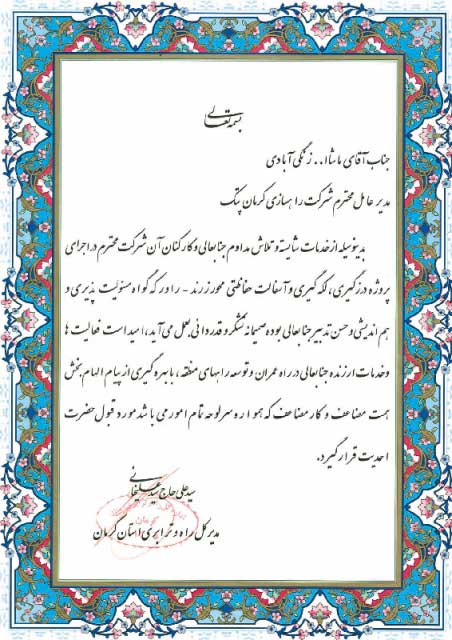 بسمه تعالی
جناب آقای ماشاا... زنگی آبادی
مدیر عامل محترم شرکت راهسازی کرمان پتک
بدینوسیله از خدمات شایسته و تلاش مداوم جنابعالی و کارکنان آن شرکت محترم در اجرای
پروژه درزگیری ، لکه گیری و آسفالت حفاظتی محور زرند - راور که گواه مسئولیت پذیری و
هم اندیشی و حسن تدبیر جنابعالی بوده صمیمانه تشکر و قدردانی بعمل می آید ، امید است فعالیت ها
و خدمات ارزنده جنابعالی در راه عمران و توسعه راههای منطقه ، با بهره گیری از پیام الهام بخش
همت مضاعف و کار مضاعف که همواره سرلوحه تمام امور می باشد مورد قبول حضرت
احدیت قرار گیرد .
سید علی حاج سید علیخانی
مدیر کل راه و ترابری استان کرمان